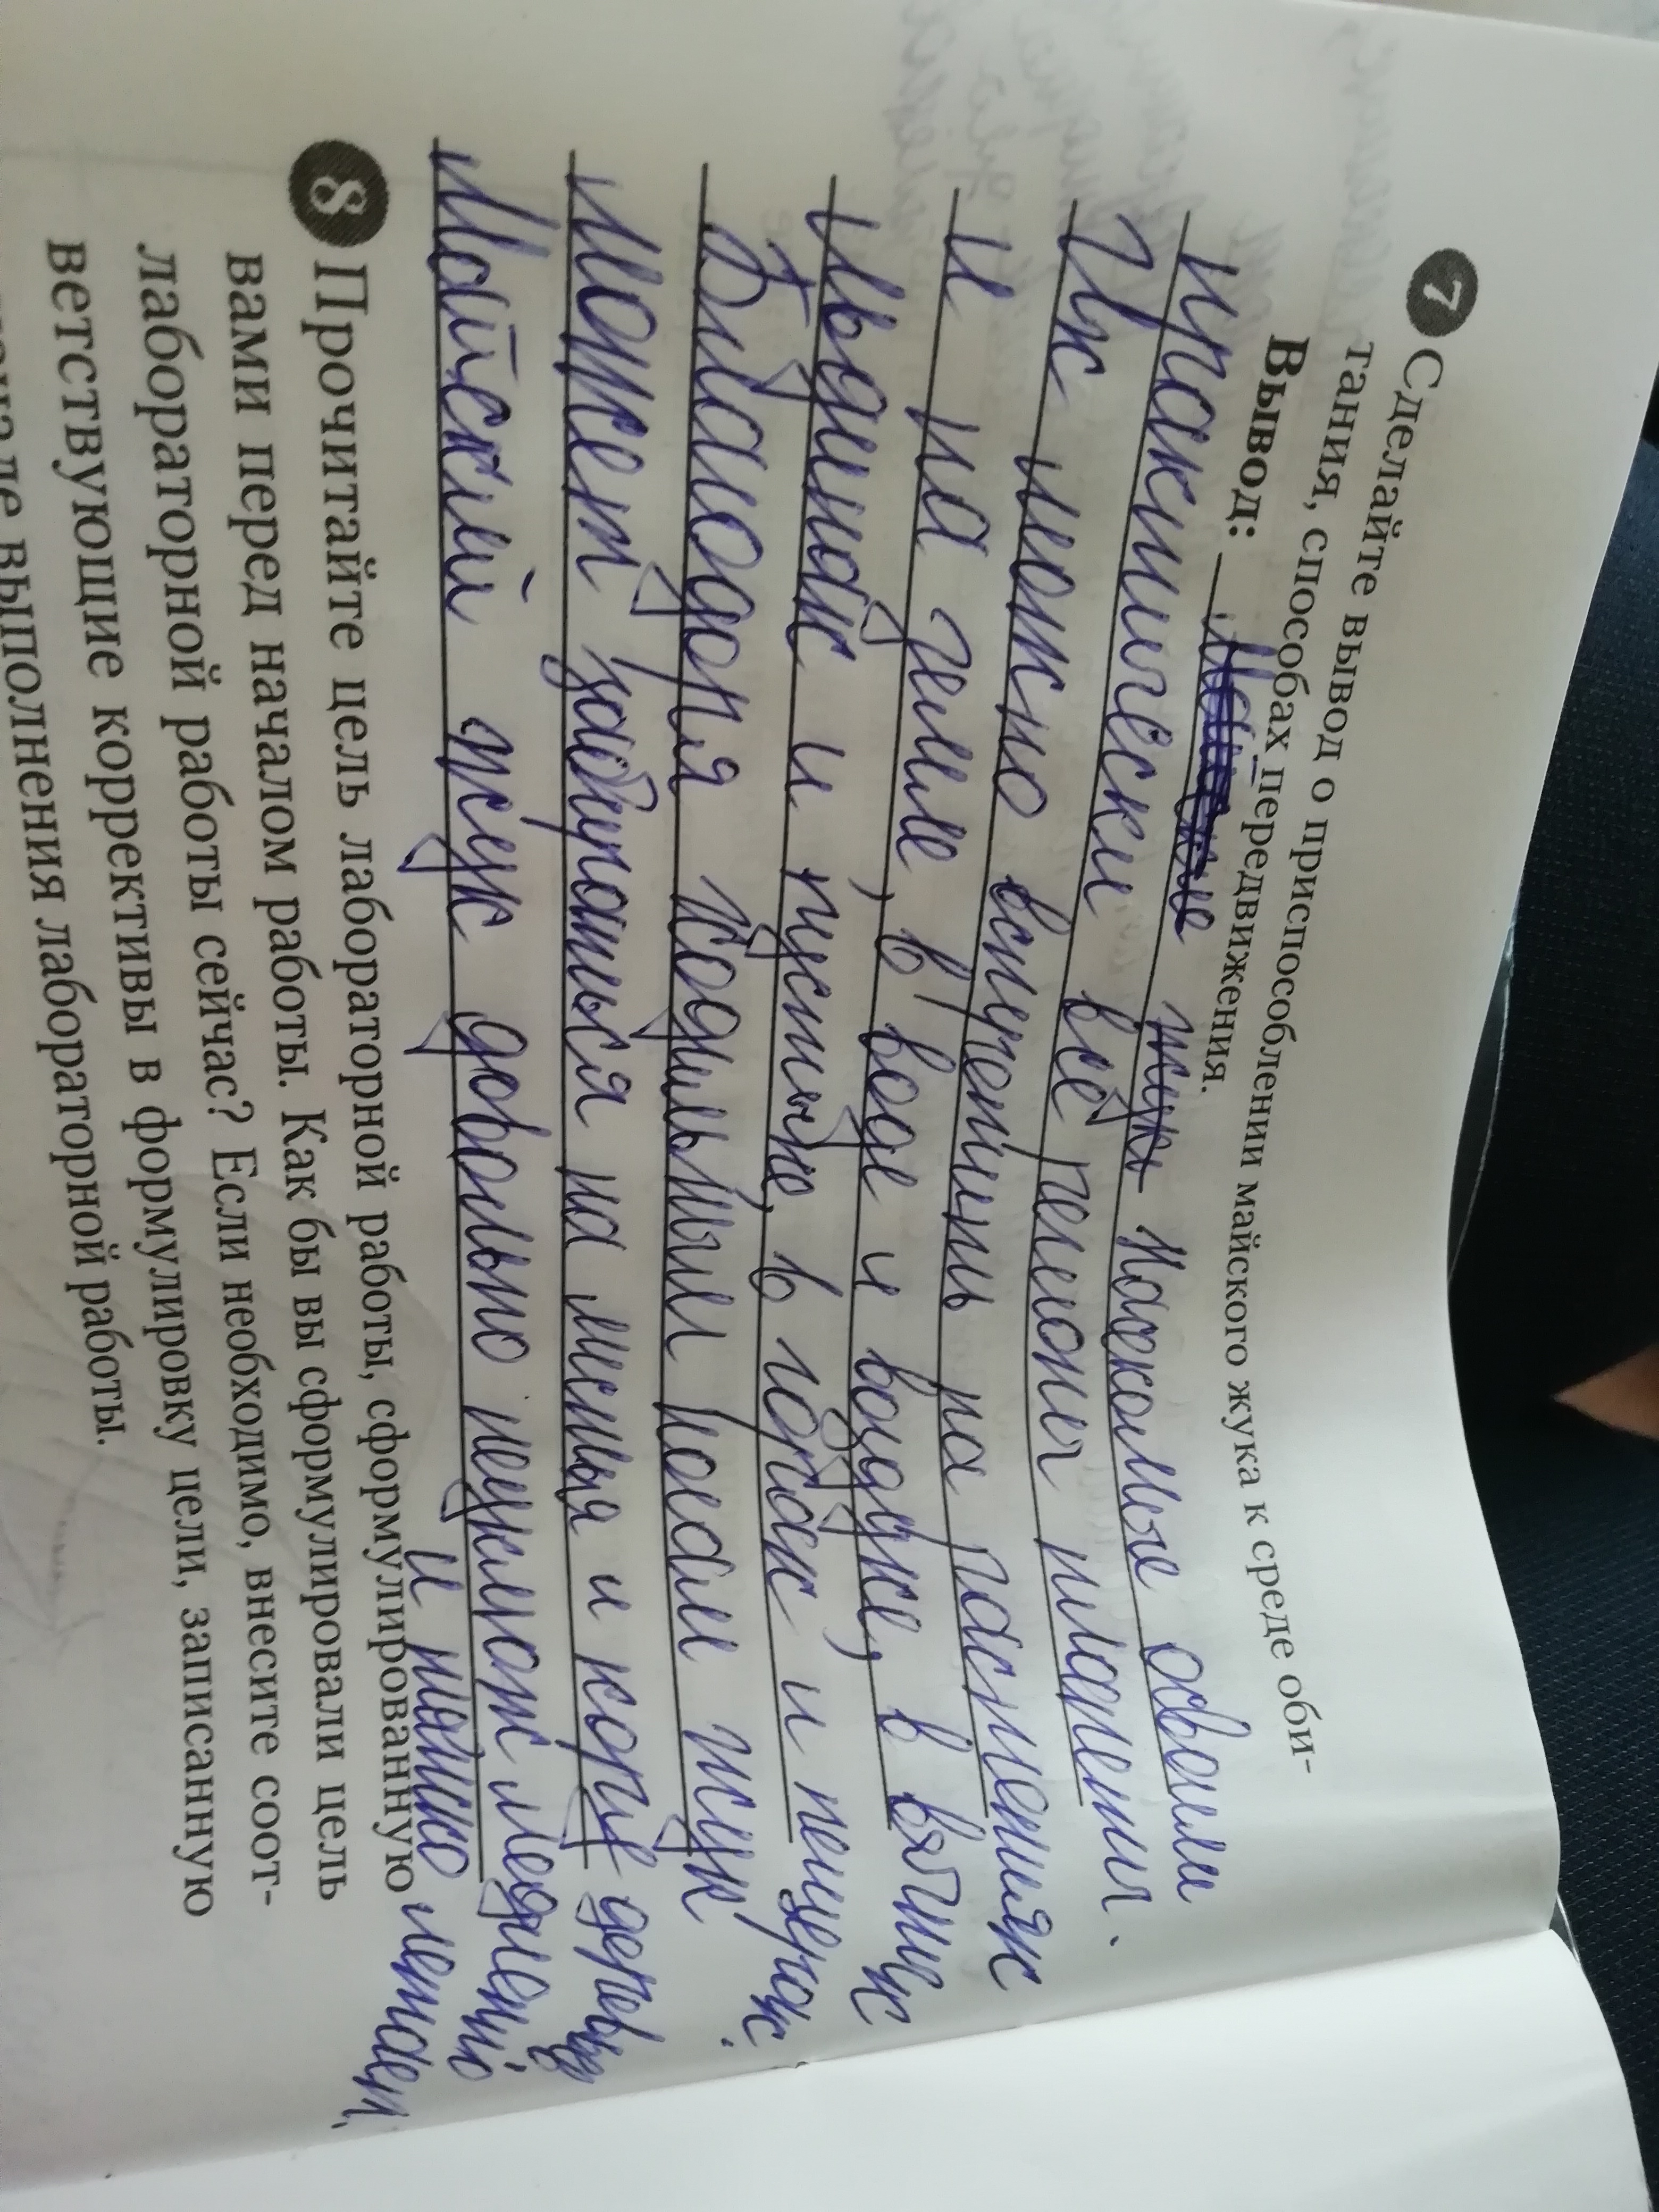 7 Сделайте вывод о приспособлении майского жука к среде оби-
тания, способах передвижения.
Вывод: Насекомые освоили
практически все регионы планеты.
Их можно встретить на растениях
и на земле, в воде и воздухе, в вечных
льдинах и пустыне, в горах и пещерах.
Благодаря ходильным ногам жук
может забираться на листья и кору деревье
Майский жук довольно неуклюж медлен
и тяжко летает,
8 Прочитайте цель лабораторной работы, сформулированную
вами перед началом работы. Как бы вы сформулировали цель
лабораторной работы сейчас? Если необходимо, внесите соот-
ветствующие коррективы в формулировку цели, записанную
выполнения лабораторной работы.